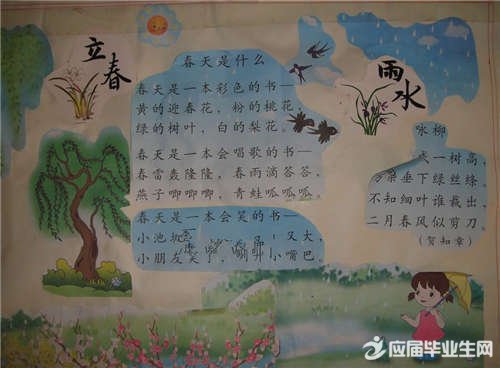 立春
春天是什么
春天是一本彩色的书—
黄的迎春花，粉的桃花，
绿的树叶，白的梨花。
春天是一本会唱歌的书—
春雷轰隆隆，春雨滴答答，
燕子唧唧唧，青蛙呱呱呱。
春天是一本会笑的书—
小池 又大，
小朋友笑了， 小嘴巴。
雨水
咏柳
成一树高，
条垂下绿丝绦。
不知细叶谁裁出，
二月春风似剪刀。
（贺知章）
应届毕业生网